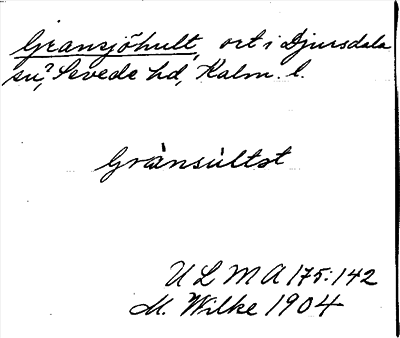 Gransjöhult, ort i Djursdala
sn?, Sevede hd, Kalm. l.
Grànsùltət
ULMA 175:142
M. Wilke 1904